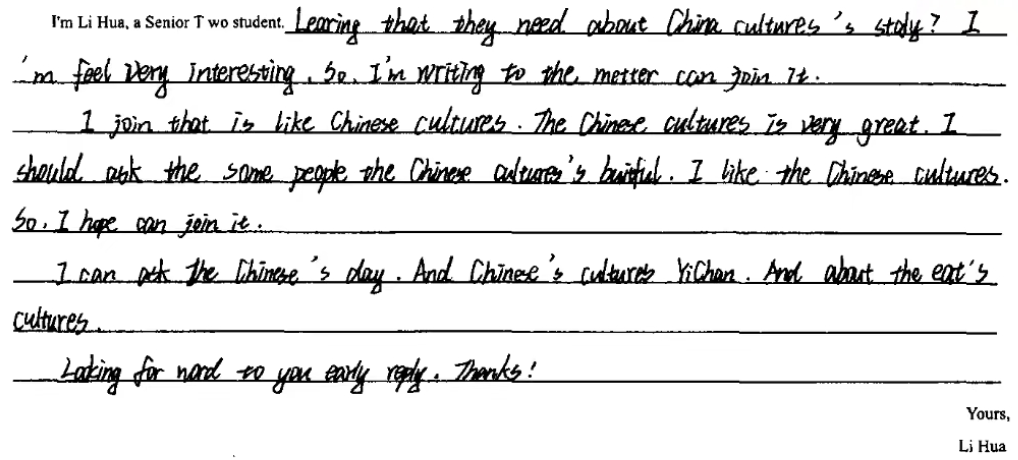 I'm Li Hua, a Senior T wo student. Learing that they need about China cultures's stoly? I
'm feel very interesting. So. I'm writing to the metter can join it.
I join that is like Chinese cultures. The Chinese cultures is very great. I
should ask the some people the Chinese cultures's buitful. I like the Chinese cultures.
So. I hope can join it.
I can ask the Chinese's day. And Chinese's cultures YiChan. And about the eat's
cultures.
Looking for word to you early reply. Thanks!
Yours,
Li Hua